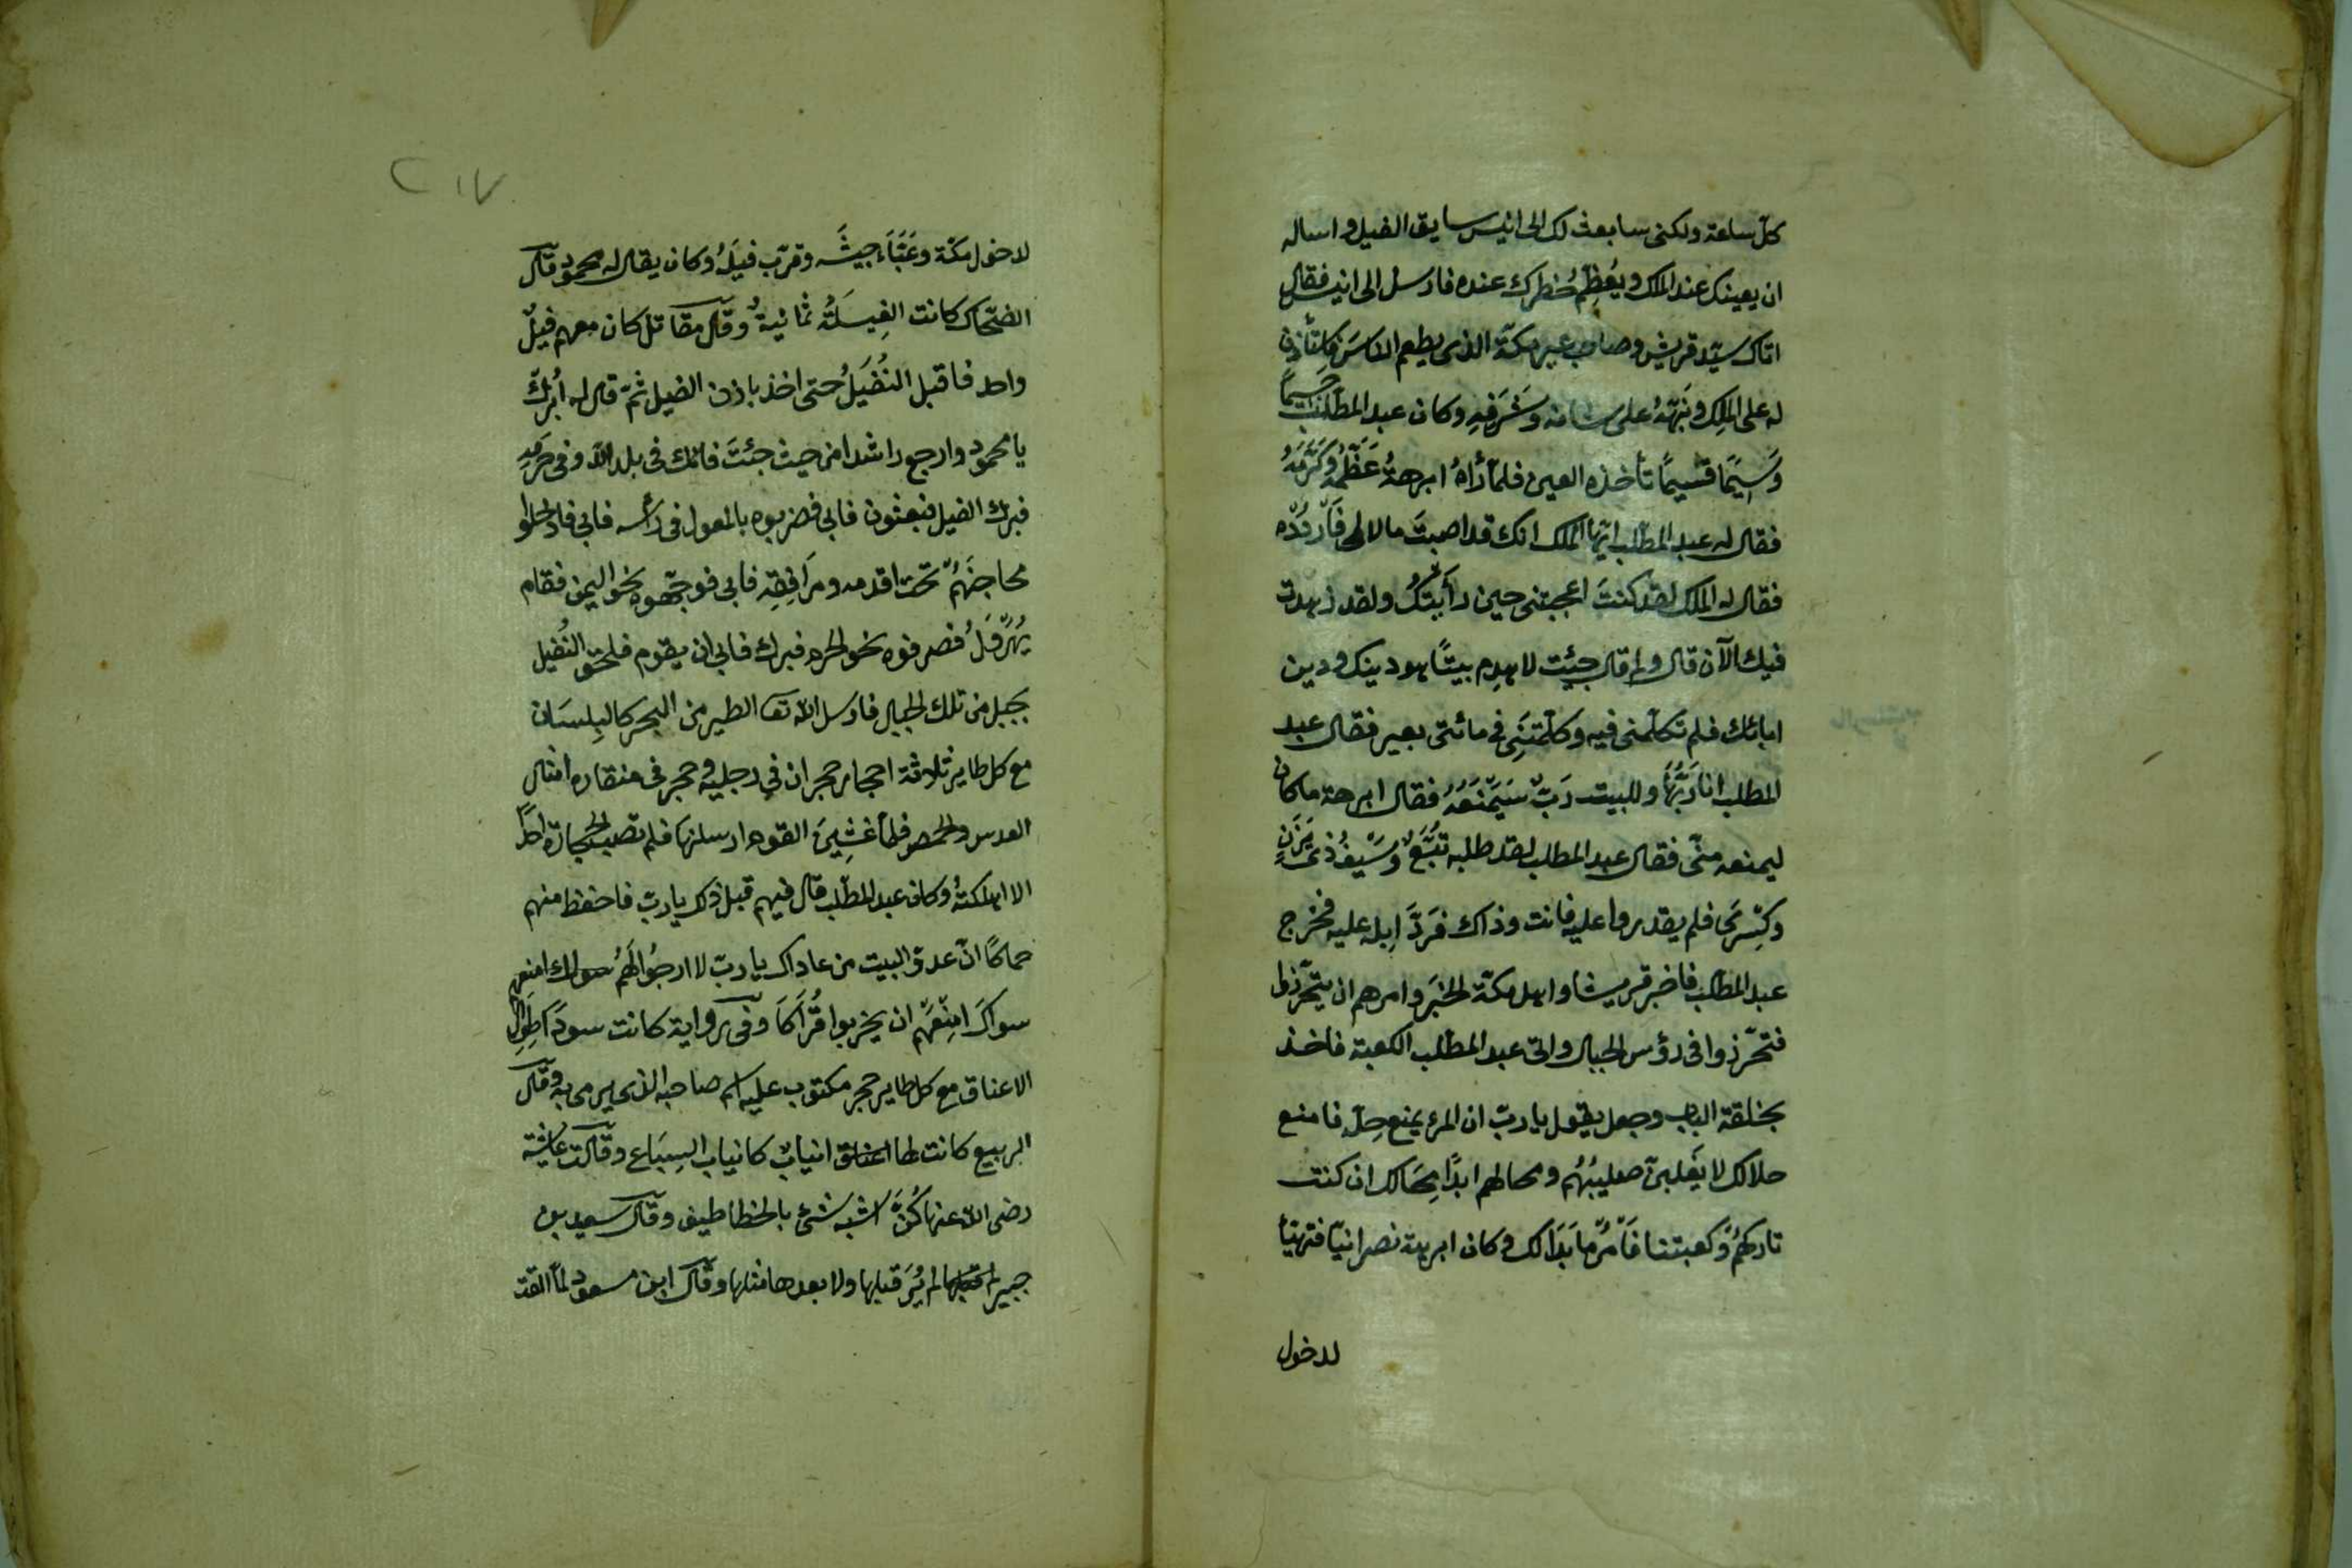 كلّ ساعة ولكنى سابعث لك الى انيس سايق الفيل واساله
ان يعينك عند الملك ويُعظِّم خُطرك عنده فارسل الى انيس فقال
اتاك سيّد قريش وصاحب عير مكّة الذى يطعم الناسَ فاستأذن
له على الملِكِ ونَبّهَهُ على شانه وشَرَفِهِ وكان عبد المطّلب جَسِيماً
وَسِيمًا قسيمًا تأخذه العين فلمّا رَاهُ ابرهةُ عَظَّمَهُ وكَرَّمَهُ
فقال له عبد المطّلب ايّها الملك انك قد اصبتَ مالا لى فَارْدُدْه
فقال له الملك لقد كنتَ اعجبتنى حين رأيتُكَ ولقد زهدت
فيك الآن قال ولم قال جيئت لاهدِم بيتًا هو دينك ودين
ابائك فلم تكلّمنى فيه وكلّمتنِى فى مائتى بعير فقال عبد
المطلب انا رَبُّهَا وللبيت رَبّ سَيَمْنَعُهُ فقال ابرهة ما كان
ليمنعه منّى فقال عبد المطلب لقد طلبه تُبَّعٌ وسَيفُ ذى يَزَنٍ
وكِسْرَى فلم يقدروا عليه فانت وذاك فَرَدَّ اِبله عليه فخرج
عبد المطّلب فاخبر قريشا واهل مكّة الخبَر وامرهم ان يتحرّزوا
فتحرّزوا فى رؤس الجبال واتى عبد المطّلب الكعبة فاخذ
بحلقة الباب وجعل يقول يا ربّ ان المرء يمنع حِلّه فامنع
حلالك لا يَغلبنّ صليبُهُم ومحالهم ابدًا مِحَالك ان كنت
تاركهُم وكعبتنا فَأْمُرْ ما بَدَا لك وكان ابرهة نصرانيّا فتهيّأ
لدخول
٢١٧
لدخول مكّة وعَبَّاءَ جيشَه وقرّب فيلَهُ وكان يقال له محمود قال
الضحّاك كانت الفِيلَةُ ثمانيةٌ وقال مقاتل كان معهم فيلٌ
واحد فاقبل النُفَيلُ حتى اخذ باذن الفيل ثمّ قال له اُبرُك
يا محمود وارجع راشدا من حيث جئتَ فانك فى بلد الله وفى حَرَمِهِ
فبرك الفيل فبعثوه فابى فضربوه بالمعول فى رأسه فابى فادخلوا
محاجنَهُم تحت اقدمه ومَرَافِقِه فابى فوجّهوه نحو اليمن فقام
يُهَرْوِلُ فصرفوه نحو الحرم فبرك فابى ان يقوم فلحق النُفيل
بجبل من تلك الجبال فارسل الله تعا الطير من البحر كالبِلسَان
مع كل طاير ثلاثة احجار حجران فى رجليه وحجر فى منقاره امثال
العدس والحمص فلمّا غشِينَ القوم ارسلنها فلم تصب الحجارة احدًا
الا اهلكتهُ وكان عبد المطّلب قال فيهم قبل ذلك يا ربّ فاحفظ منهم
حماكا انّ عدوّ البيت من عاداك يا ربّ لا ارجُوا لهُم
سواكَ امنَعهُم ان يخربوا قُرَاكَا وفى رواية كانت سودًا طِوالِ
الاعناق مع كل طاير حجر مكتوب عليه اسم صاحبه الذى يرمى به وقال
الربيع كانت لها انيابٌ كانياب السِبَاع وقالت عائشة
رضى الله عنها كُنَّ اشبه شئ بالخطاطيف وقال سعيد بن
جبير لم يُرَ قبلها ولا بعدها مثلها وقال ابن مسعود لمّا القت